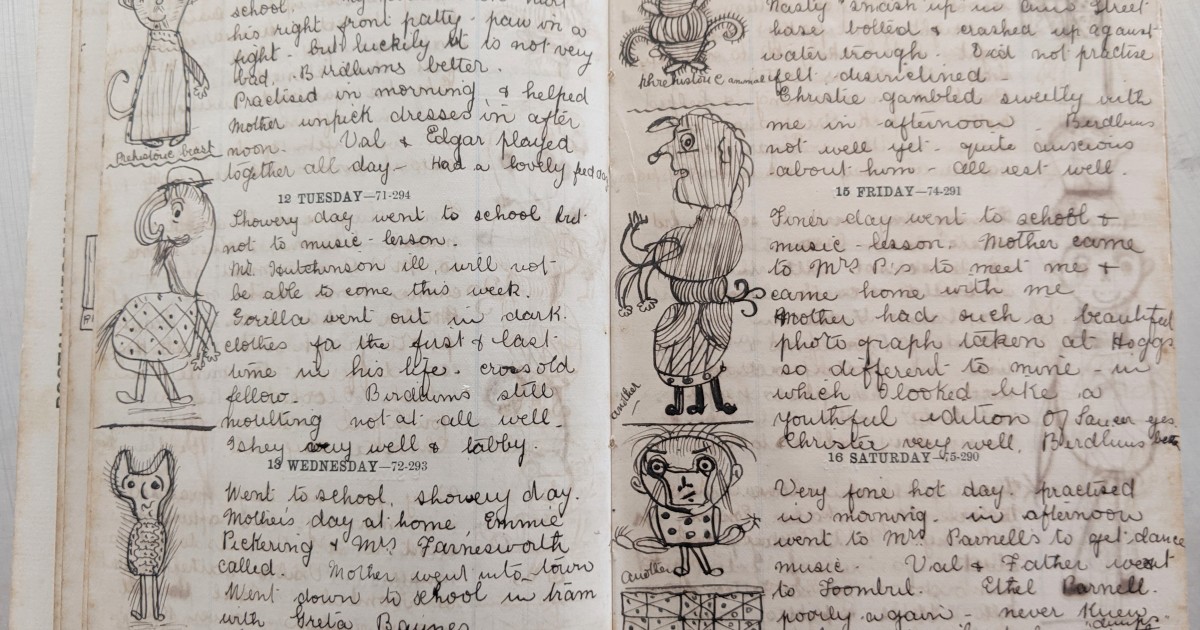 school.
his right front patty-paw in a
fight. but luckily it is not very
bad. Birdlums better.
Practised in morning, & helped
Mother unpick dresses in after
noon. Val & Edgar played
together all day - Had a lovely
Prehistoric beast
12 TUESDAY—71-294
Showery day went to school but
not to music-lesson.
Mr Hutchinson ill, will not
be able to come this week.
Gorilla went out in dark
clothes for the first & last
time in his life. cross old
fellow. Birdlums still
moulting not at all well.
very well & tabby.
13 WEDNESDAY—72-293
Went to school, showery day.
Mother's day at home Emmie
Pickering & Mrs Farnesworth
called. Mother went into town
Went down to school in tram
with Greta Baynes
Nasty smash up in street
bolted & crashed up against
water trough. Did not practise
felt disinclined -
phrehistoric animal
Christie gambled sweetly with
me in afternoon - Berdlums
not well yet. quite anxious
about him - all rest well.
15 FRIDAY—74-291
Finer day went to school &
music-lesson. Mother came
to Mrs P's to meet me &
came home with me
Mother had such a beautiful
photograph taken at Hoggs
so different to mine - in
which I looked like a
youthful edition of Saucer eyes.
Christie very well, Berdlums
another
16 SATURDAY—75-290
Very fine hot day. practised
in morning. in afternoon
went to Mrs Parnell's to get dance
music. Val & Father went
to Toombul. Ethel Parnell
poorly again - never
another